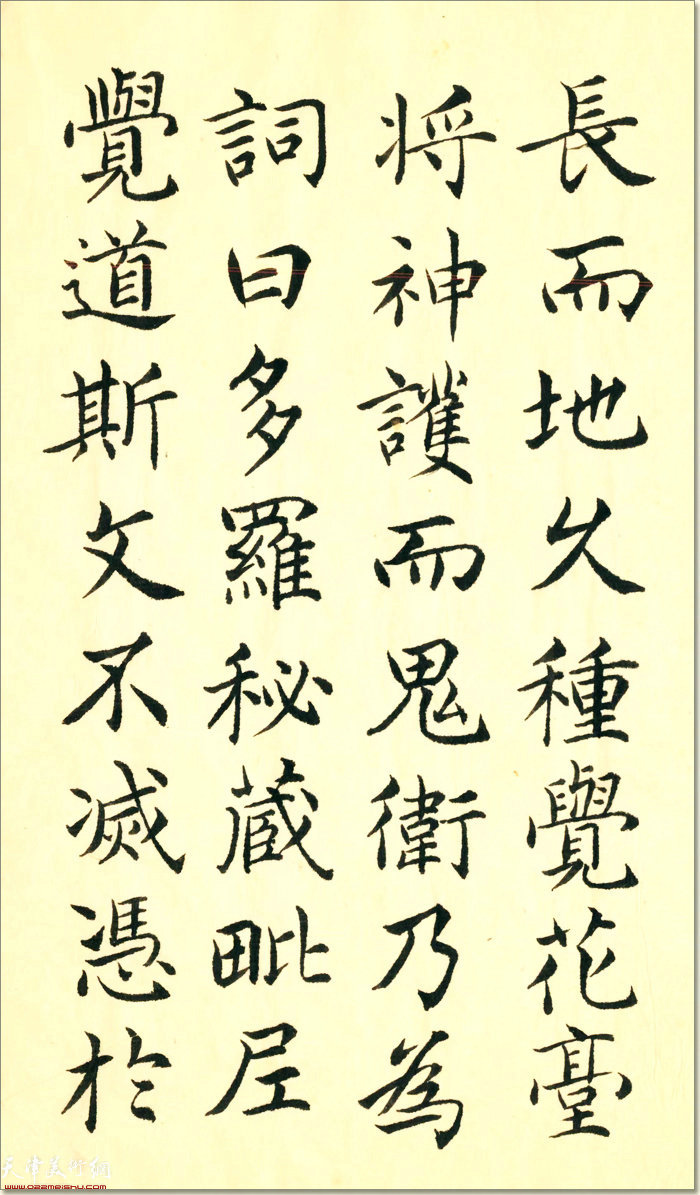 長而地久種覺花臺
将神護而鬼衛乃為
詞曰多羅秘蔵毗尼
覺道斯文不滅憑於
天津美术网
www.022meishu.com